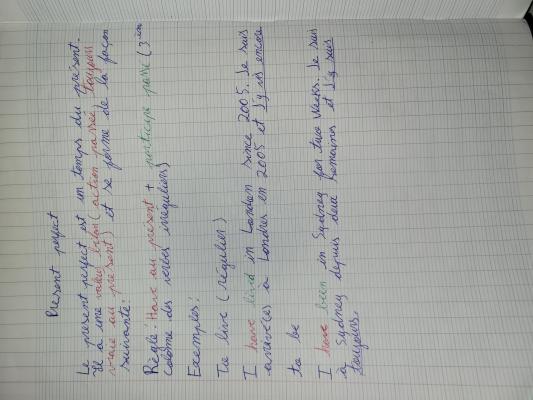 Present perfect
Le present perfect est un temps du présent.
Il a une valeur bilan (action passée, toujours
vraie au présent) et se forme de la façon
suivante:
Règle: Have au présent + participe passé (3ième
colonne des verbes irréguliers)
Exemples:
To live (régulier)
I have lived in London since 2005. Je suis
arrivé(e) à Londres en 2005 et j'y vis encore
to be
I have been in Sydney for two weeks. Je suis
à Sydney depuis deux semaines et j'y suis
toujours.